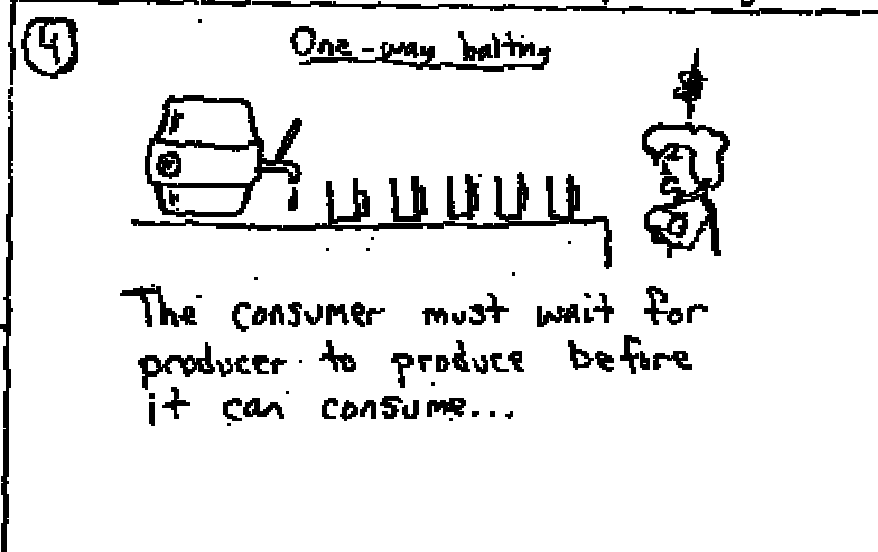 4
One-way halting
The consumer must wait for
producer to produce before
it can consume...